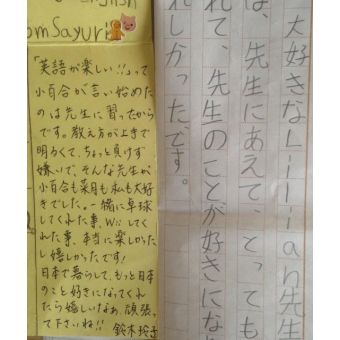 English
omSayuri
「英語が楽しい!!」って
小百合が言い始めた
のは先生に習ったから
です。教え方が上手で
明るくて、ちょっと負けず
嫌いで、そんな先生が
小百合も菜月も私も大好
きでした。一緒に卓球
してくれた事、Wiiしてく
れた事、本当に楽しかった
し嬉しかったです!
日本で暮らして、もっと日本
のこと好きになってくれ
たら嬉しいなぁ。頑張っ
て下さいね!! 鈴木玲子
大好きなLillian先生
は、先生にあえて、とっても
れて、先生のことが好きになり
れしかったです。